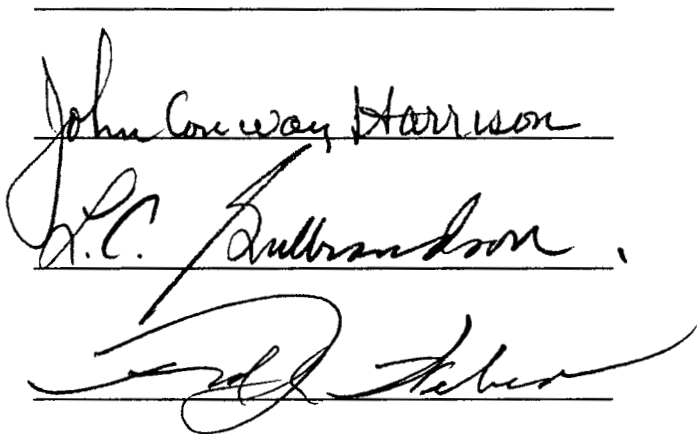 John Conway Harrison
L.C. Gulbrandson
Fred J. Weber